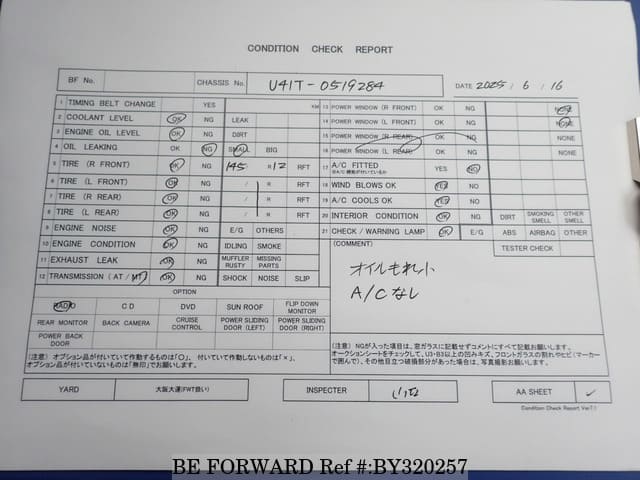 CONDITION CHECK REPORT
BF No. CHASSIS No. U41T-0519284 DATE 2025 / 6 / 16
1 TIMING BELT CHANGE YES KM
2 COOLANT LEVEL OK NG LEAK
3 ENGINE OIL LEVEL OK NG DIRT
4 OIL LEAKING OK NG SMALL BIG
5 TIRE (R FRONT) OK NG 145 R 12 RFT
6 TIRE (L FRONT) OK NG / R RFT
7 TIRE (R REAR) OK NG / R RFT
8 TIRE (L REAR) OK NG / R RFT
9 ENGINE NOISE OK NG E/G OTHERS
10 ENGINE CONDITION OK NG IDLING SMOKE
11 EXHAUST LEAK OK NG MUFFLER RUSTY MISSING PARTS
12 TRANSMISSION (AT / MT) OK NG SHOCK NOISE SLIP
OPTION
RADIO CD DVD SUN ROOF FLIP DOWN MONITOR
REAR MONITOR BACK CAMERA CRUISE CONTROL POWER SLIDING DOOR (LEFT) POWER SLIDING DOOR (RIGHT)
POWER BACK DOOR
(注意) オプション品が付いていて作動するものは「○」、付いていて作動しないものは「×」、
オプション品が付いていないものは「無印」でお願いします。
13 POWER WINDOW (R FRONT) OK NG NONE
14 POWER WINDOW (L FRONT) OK NG NONE
15 POWER WINDOW (R REAR) OK NG NONE
16 POWER WINDOW (L REAR) OK NG NONE
17 A/C FITTED YES NO
※A/C 機能が付いているか
18 WIND BLOWS OK YES NO
19 A/C COOLS OK YES NO
20 INTERIOR CONDITION OK NG DIRT SMOKING SMELL OTHER SMELL
21 CHECK / WARNING LAMP OK E/G ABS AIRBAG OTHER
(COMMENT) TESTER CHECK
オイルもれ小
A/Cなし
(注意) NGが入った項目は、窓ガラスに記載せずコメントにすべて記載お願いします。
オークションシートをチェックして、U3・B3以上の凹みキズ、フロントガラスの割れやヒビ(マーカー
で囲んで)、その他目立つ破損部分があった場合は、写真撮影お願いします。
YARD 大阪大運(FWT扱い) INSPECTER AA SHEET ✓
©Condition Check Report Ver7.1
BE FORWARD Ref #:BY320257